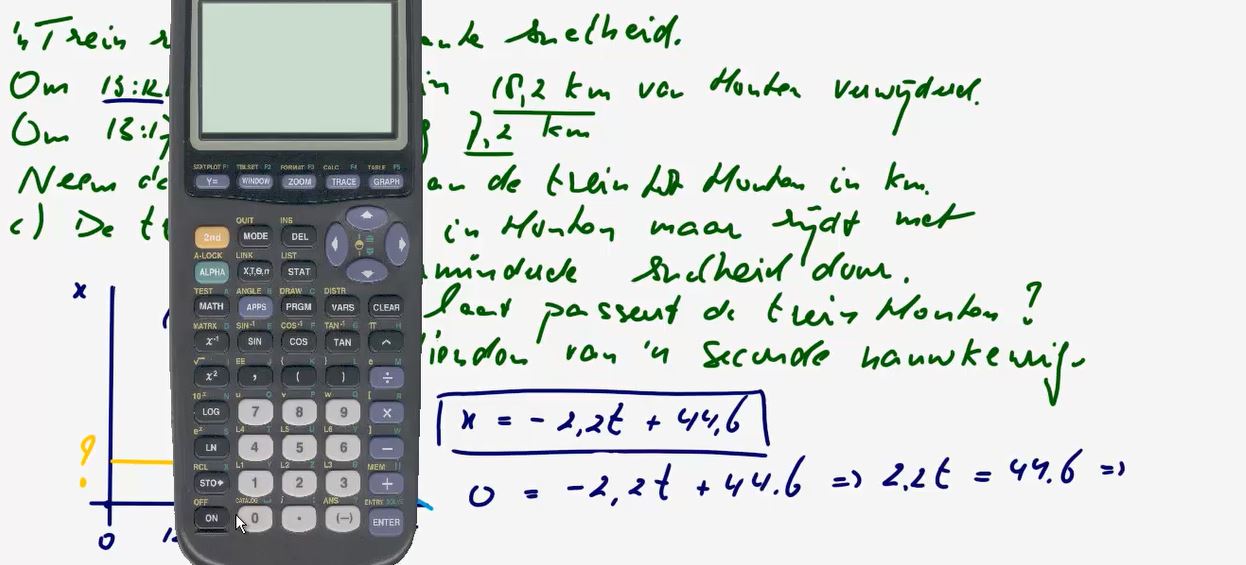 'n Trein snelheid.
Om 13:12 18,2 km van Houten verwijderd.
Om 13:17 7,2 km
Neem de van de trein tot Houten in km.
c) De in Houten maar rijdt met
verminderde snelheid door.
laat passeert de trein Houten?
van 'n seconde nauwkeurig.
x
x = -2,2t + 44,6
0 = -2,2t + 44.6 => 2,2t = 44.6 =>
?
0
STAT PLOT F1 TBLSET F2 FORMAT F3 CALC F4 TABLE F5
Y= WINDOW ZOOM TRACE GRAPH
QUIT INS
2nd MODE DEL
A-LOCK LINK LIST
ALPHA X,T,θ,n STAT
TEST A ANGLE B DRAW C DISTR
MATH APPS PRGM VARS CLEAR
MATRX D SIN⁻¹ E COS⁻¹ F TAN⁻¹ G π H
x⁻¹ SIN COS TAN ^
√ I EE J { K } L e M
x² , ( ) ÷
10ˣ N u O v P w Q [ R
LOG 7 8 9 ×
eˣ S L4 T L5 U L6 V ] W
LN 4 5 6 −
RCL X L1 Y L2 Z L3 θ MEM "
STO▸ 1 2 3 +
OFF CATALOG i ANS ? ENTRY SOLVE
ON 0 . (−) ENTER